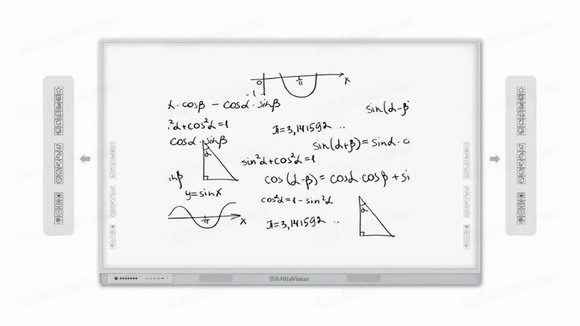 0 π x
-1
α·cosβ - cosα·sinβ
sin(α-β
i²α+cos²α=1
π=3,141592 ..
cosα·sinβ
sin(α+β)=sinα·c
α
sin²α+cos²α=1
inβ
cos(α-β)=cosα cosβ+si
y=sinx
cos²α=1-sin²α
α
π x
π=3,141592 ..
HiteVision